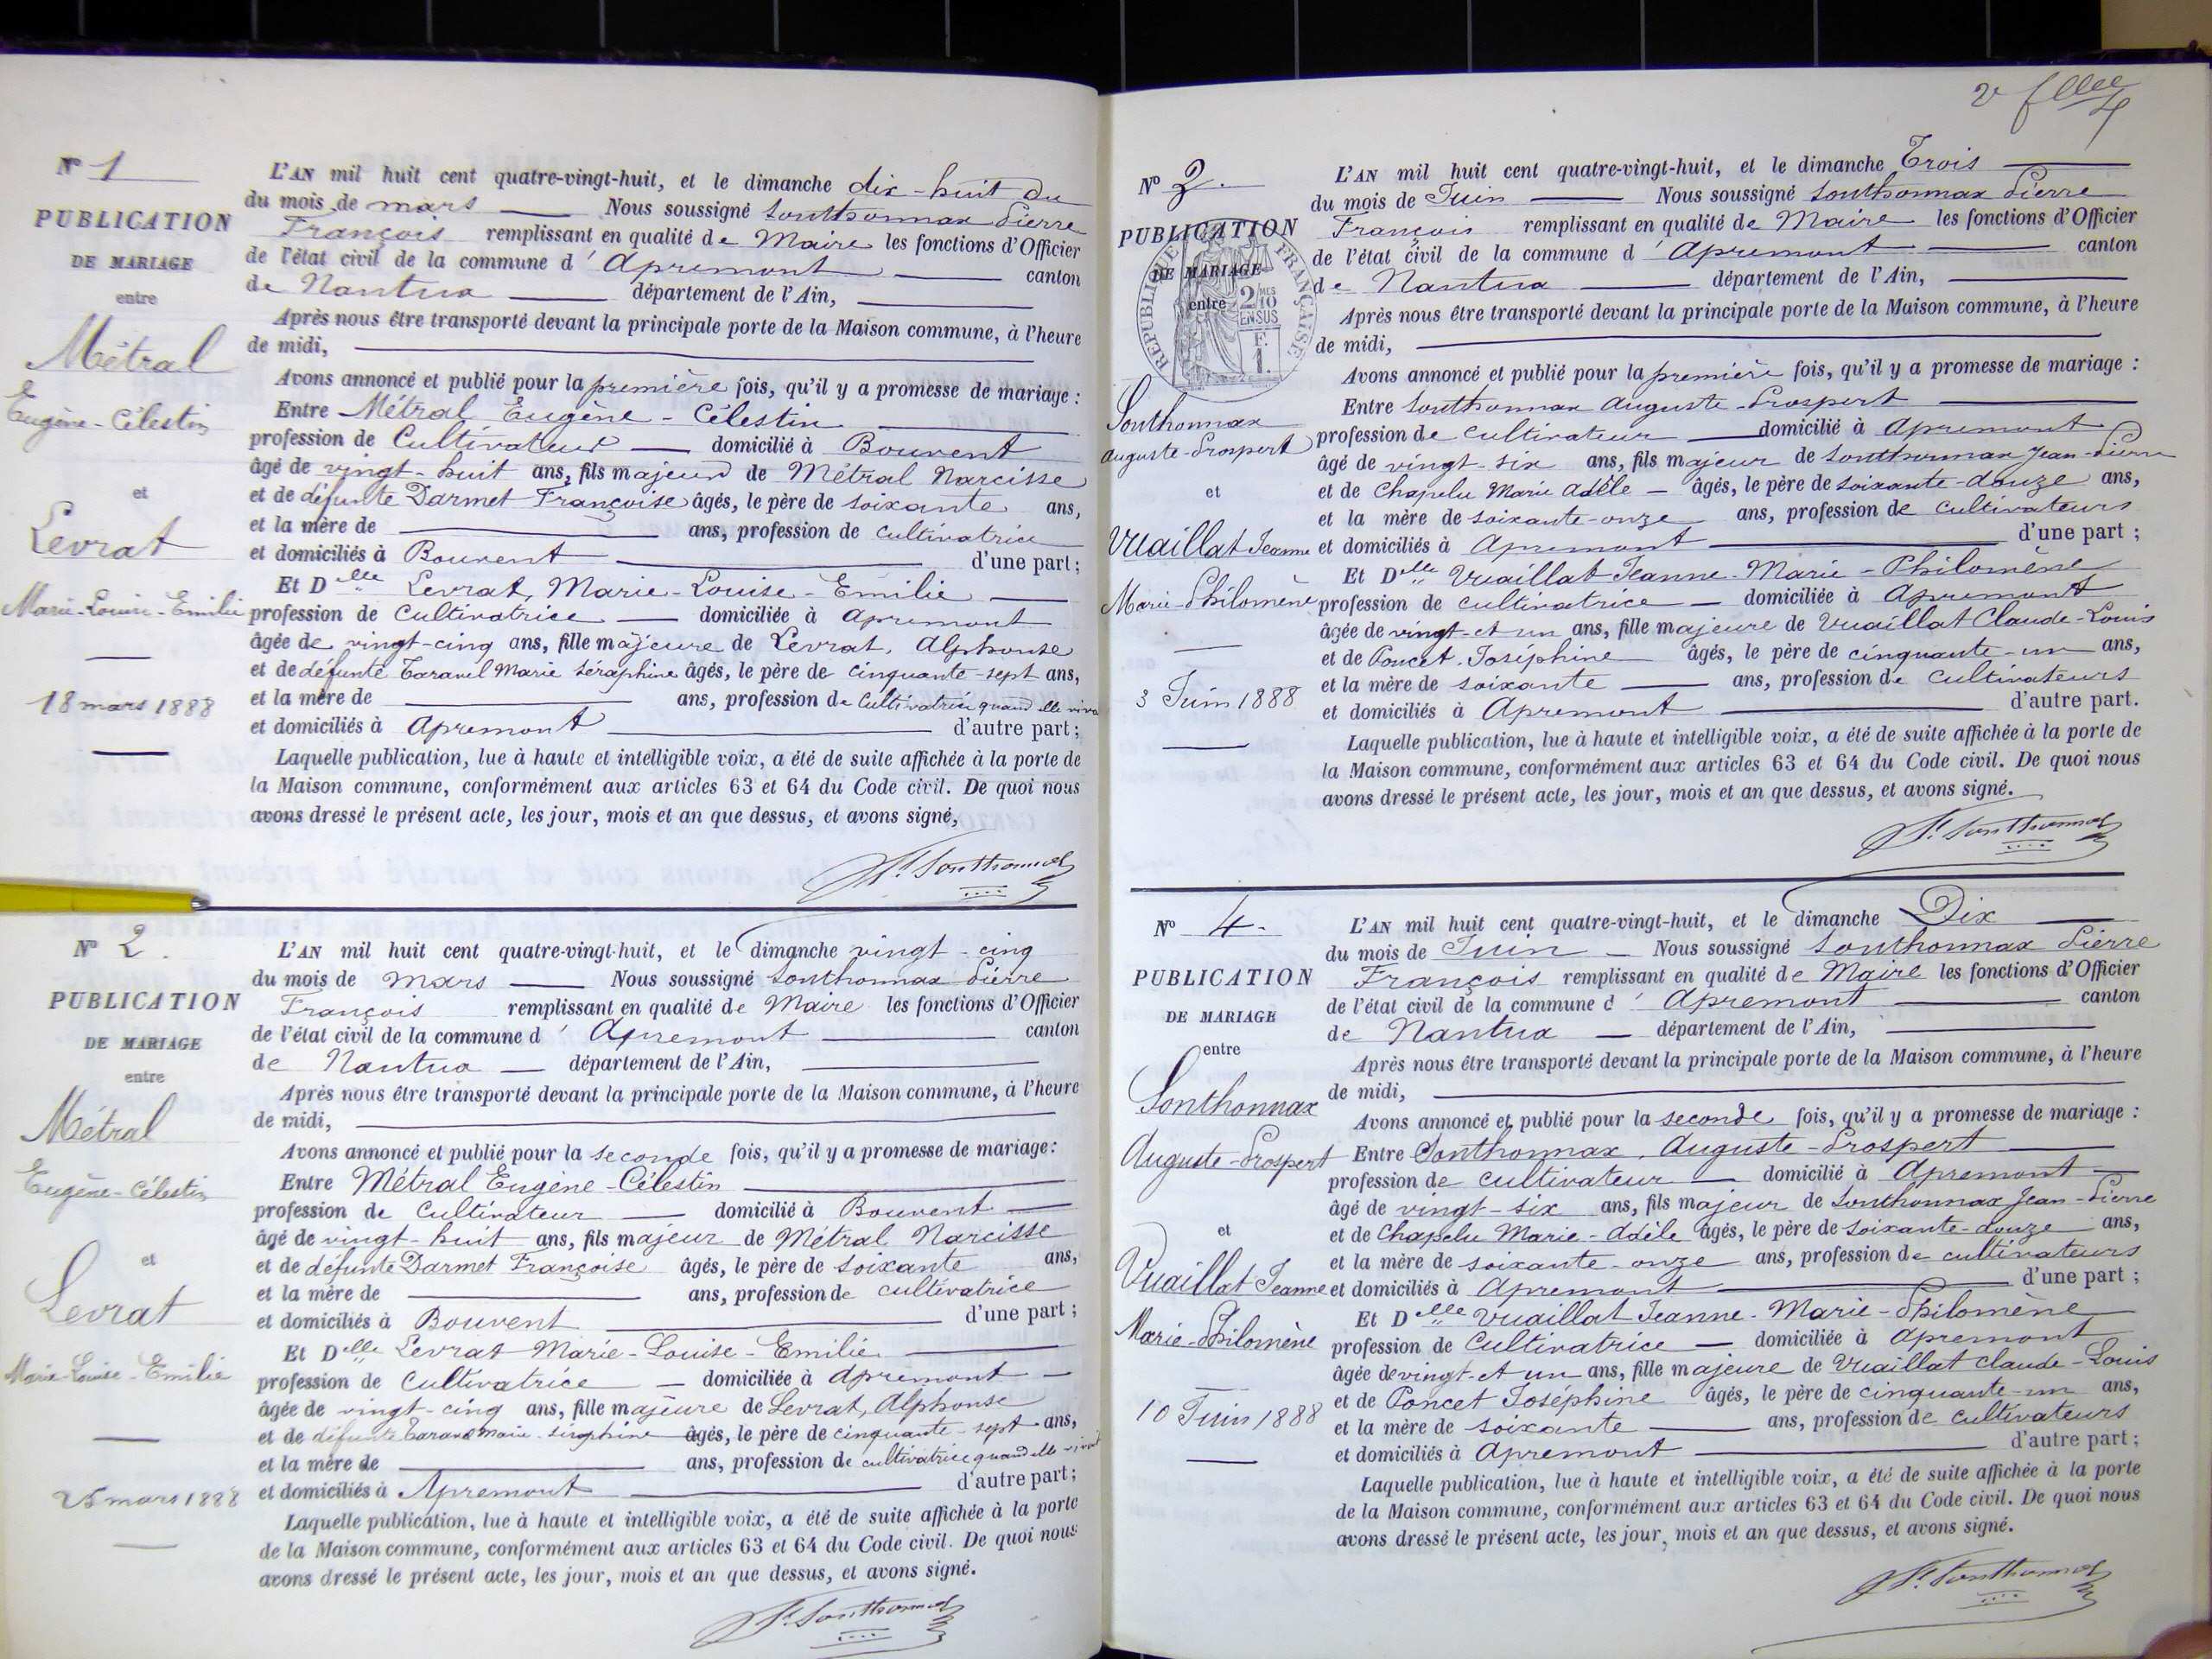 Nº 1
PUBLICATION
DE MARIAGE
entre
Métral
Eugène-Célestin
et
Levrat
Marie-Louise-Emilie
18 mars 1888
L'AN mil huit cent quatre-vingt-huit, et le dimanche dix-huit du
du mois de mars Nous soussigné Sonthonnax Pierre
François remplissant en qualité de Maire les fonctions d'Officier
de l'état civil de la commune d' Apremont canton
de Nantua département de l'Ain,
Après nous être transporté devant la principale porte de la Maison commune, à l'heure
de midi,
Avons annoncé et publié pour la première fois, qu'il y a promesse de mariage :
Entre Métral Eugène-Célestin
profession de Cultivateur domicilié à Bouvent
âgé de vingt-huit ans, fils majeur de Métral Narcisse
et de défunte Darmet Françoise âgés, le père de soixante ans,
et la mère de ans, profession de cultivatrice
et domiciliés à Bouvent d'une part ;
Et Delle Levrat, Marie-Louise-Emilie
profession de Cultivatrice domiciliée à Apremont
âgée de vingt-cinq ans, fille majeure de Levrat, Alphonse
et de défunte Taravel Marie Séraphine âgés, le père de cinquante-sept ans,
et la mère de ans, profession de Cultivatrice quand elle viva
et domiciliés à Apremont d'autre part ;
Laquelle publication, lue à haute et intelligible voix, a été de suite affichée à la porte de
la Maison commune, conformément aux articles 63 et 64 du Code civil. De quoi nous
avons dressé le présent acte, les jour, mois et an que dessus, et avons signé,
Sonthonnax
Nº 2.
PUBLICATION
DE MARIAGE
entre
Métral
Eugène-Célestin
et
Levrat
Marie-Louise-Emilie
25 mars 1888
L'AN mil huit cent quatre-vingt-huit, et le dimanche vingt-cinq
du mois de mars Nous soussigné Sonthonnax Pierre
François remplissant en qualité de Maire les fonctions d'Officier
de l'état civil de la commune d' Apremont canton
de Nantua département de l'Ain,
Après nous être transporté devant la principale porte de la Maison commune, à l'heure
de midi,
Avons annoncé et publié pour la seconde fois, qu'il y a promesse de mariage :
Entre Métral Eugène-Célestin
profession de Cultivateur domicilié à Bouvent
âgé de vingt-huit ans, fils majeur de Métral Narcisse
et de défunte Darmet Françoise âgés, le père de soixante ans,
et la mère de ans, profession de cultivatrice
et domiciliés à Bouvent d'une part ;
Et Delle Levrat Marie-Louise-Emilie
profession de Cultivatrice domiciliée à Apremont
âgée de vingt-cinq ans, fille majeure de Levrat, Alphonse
et de défunte Taravel Marie-Séraphine âgés, le père de cinquante-sept ans,
et la mère de ans, profession de cultivatrice quand elle vivait
et domiciliés à Apremont d'autre part ;
Laquelle publication, lue à haute et intelligible voix, a été de suite affichée à la porte
de la Maison commune, conformément aux articles 63 et 64 du Code civil. De quoi nous
avons dressé le présent acte, les jour, mois et an que dessus, et avons signé.
Sonthonnax
Nº 2.
PUBLICATION
DE MARIAGE
entre
REPUBLIQUE FRANÇAISE
2 MES
10
EN SUS
F.
1.
Sonthonnax
Auguste-Prospert
et
Vuaillat Jeanne
Marie-Philomène
3 Juin 1888
L'AN mil huit cent quatre-vingt-huit, et le dimanche Trois
du mois de Juin Nous soussigné Sonthonnax Pierre
François remplissant en qualité de Maire les fonctions d'Officier
de l'état civil de la commune d' Apremont canton
de Nantua département de l'Ain,
Après nous être transporté devant la principale porte de la Maison commune, à l'heure
de midi,
Avons annoncé et publié pour la première fois, qu'il y a promesse de mariage :
Entre Sonthonnax Auguste-Prospert
profession de cultivateur domicilié à Apremont
âgé de vingt-six ans, fils majeur de Sonthonnax Jean-Pierre
et de Chapelu Marie Adèle âgés, le père de soixante-douze ans,
et la mère de soixante-onze ans, profession de cultivateurs
et domiciliés à Apremont d'une part ;
Et Delle Vuaillat Jeanne-Marie-Philomène
profession de cultivatrice domiciliée à Apremont
âgée de vingt-et un ans, fille majeure de Vuaillat Claude-Louis
et de Poncet Joséphine âgés, le père de cinquante-un ans,
et la mère de soixante ans, profession de cultivateurs
et domiciliés à Apremont d'autre part.
Laquelle publication, lue à haute et intelligible voix, a été de suite affichée à la porte de
la Maison commune, conformément aux articles 63 et 64 du Code civil. De quoi nous
avons dressé le présent acte, les jour, mois et an que dessus, et avons signé.
Sonthonnax
Nº 4.
PUBLICATION
DE MARIAGE
entre
Sonthonnax
Auguste-Prospert
et
Vuaillat Jeanne
Marie-Philomène
10 Juin 1888
L'AN mil huit cent quatre-vingt-huit, et le dimanche Dix
du mois de Juin Nous soussigné Sonthonnax Pierre
François remplissant en qualité de Maire les fonctions d'Officier
de l'état civil de la commune d' Apremont canton
de Nantua département de l'Ain,
Après nous être transporté devant la principale porte de la Maison commune, à l'heure
de midi,
Avons annoncé et publié pour la seconde fois, qu'il y a promesse de mariage :
Entre Sonthonnax, Auguste-Prospert
profession de cultivateur domicilié à Apremont
âgé de vingt-six ans, fils majeur de Sonthonnax Jean-Pierre
et de Chapelu Marie-Adèle âgés, le père de soixante-douze ans,
et la mère de soixante-onze ans, profession de cultivateurs
et domiciliés à Apremont d'une part ;
Et Delle Vuaillat Jeanne-Marie-Philomène
profession de Cultivatrice domiciliée à Apremont
âgée de vingt-et un ans, fille majeure de Vuaillat Claude-Louis
et de Poncet Joséphine âgés, le père de cinquante-un ans,
et la mère de soixante ans, profession de cultivateurs
et domiciliés à Apremont d'autre part ;
Laquelle publication, lue à haute et intelligible voix, a été de suite affichée à la porte
de la Maison commune, conformément aux articles 63 et 64 du Code civil. De quoi nous
avons dressé le présent acte, les jour, mois et an que dessus, et avons signé.
Sonthonnax